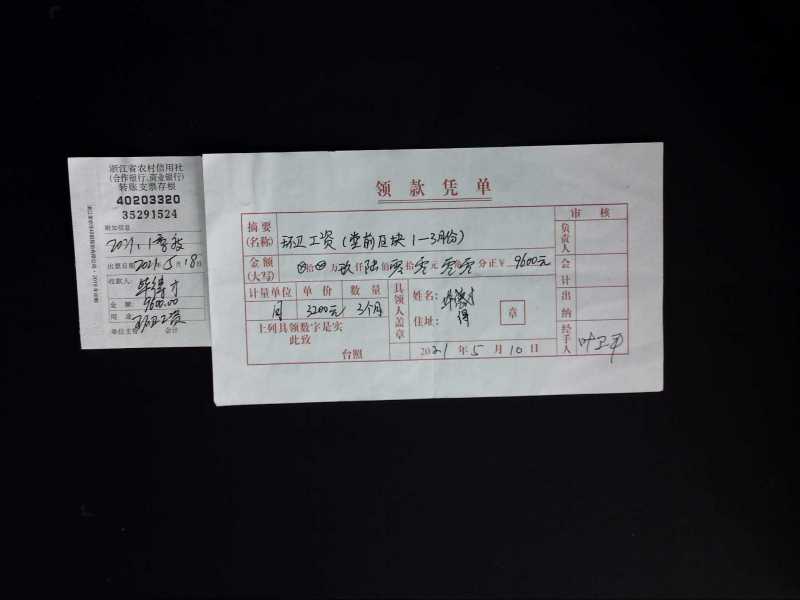 浙江省农村信用社
(合作银行、商业银行)
转账支票存根
40203320
35291524
附加信息
2021.1季度
出票日期2021年5月18日
收款人:
金 额: 9600.00
用 途: 环卫工资
单位主管 会计
领款凭单
摘要(名称) 环卫工资(堂前区块1-3月份)
金额(大写) ⊗拾⊗万玖仟陆佰零拾零元零角零分正¥ 9600元
计量单位 单价 数量
月 3200元 3个月
上列具领数字是实
此致
台照
具领人盖章
姓名:
住址:
章
2021年5月10日
审核
负责人
会计
出纳
经手人 叶卫平